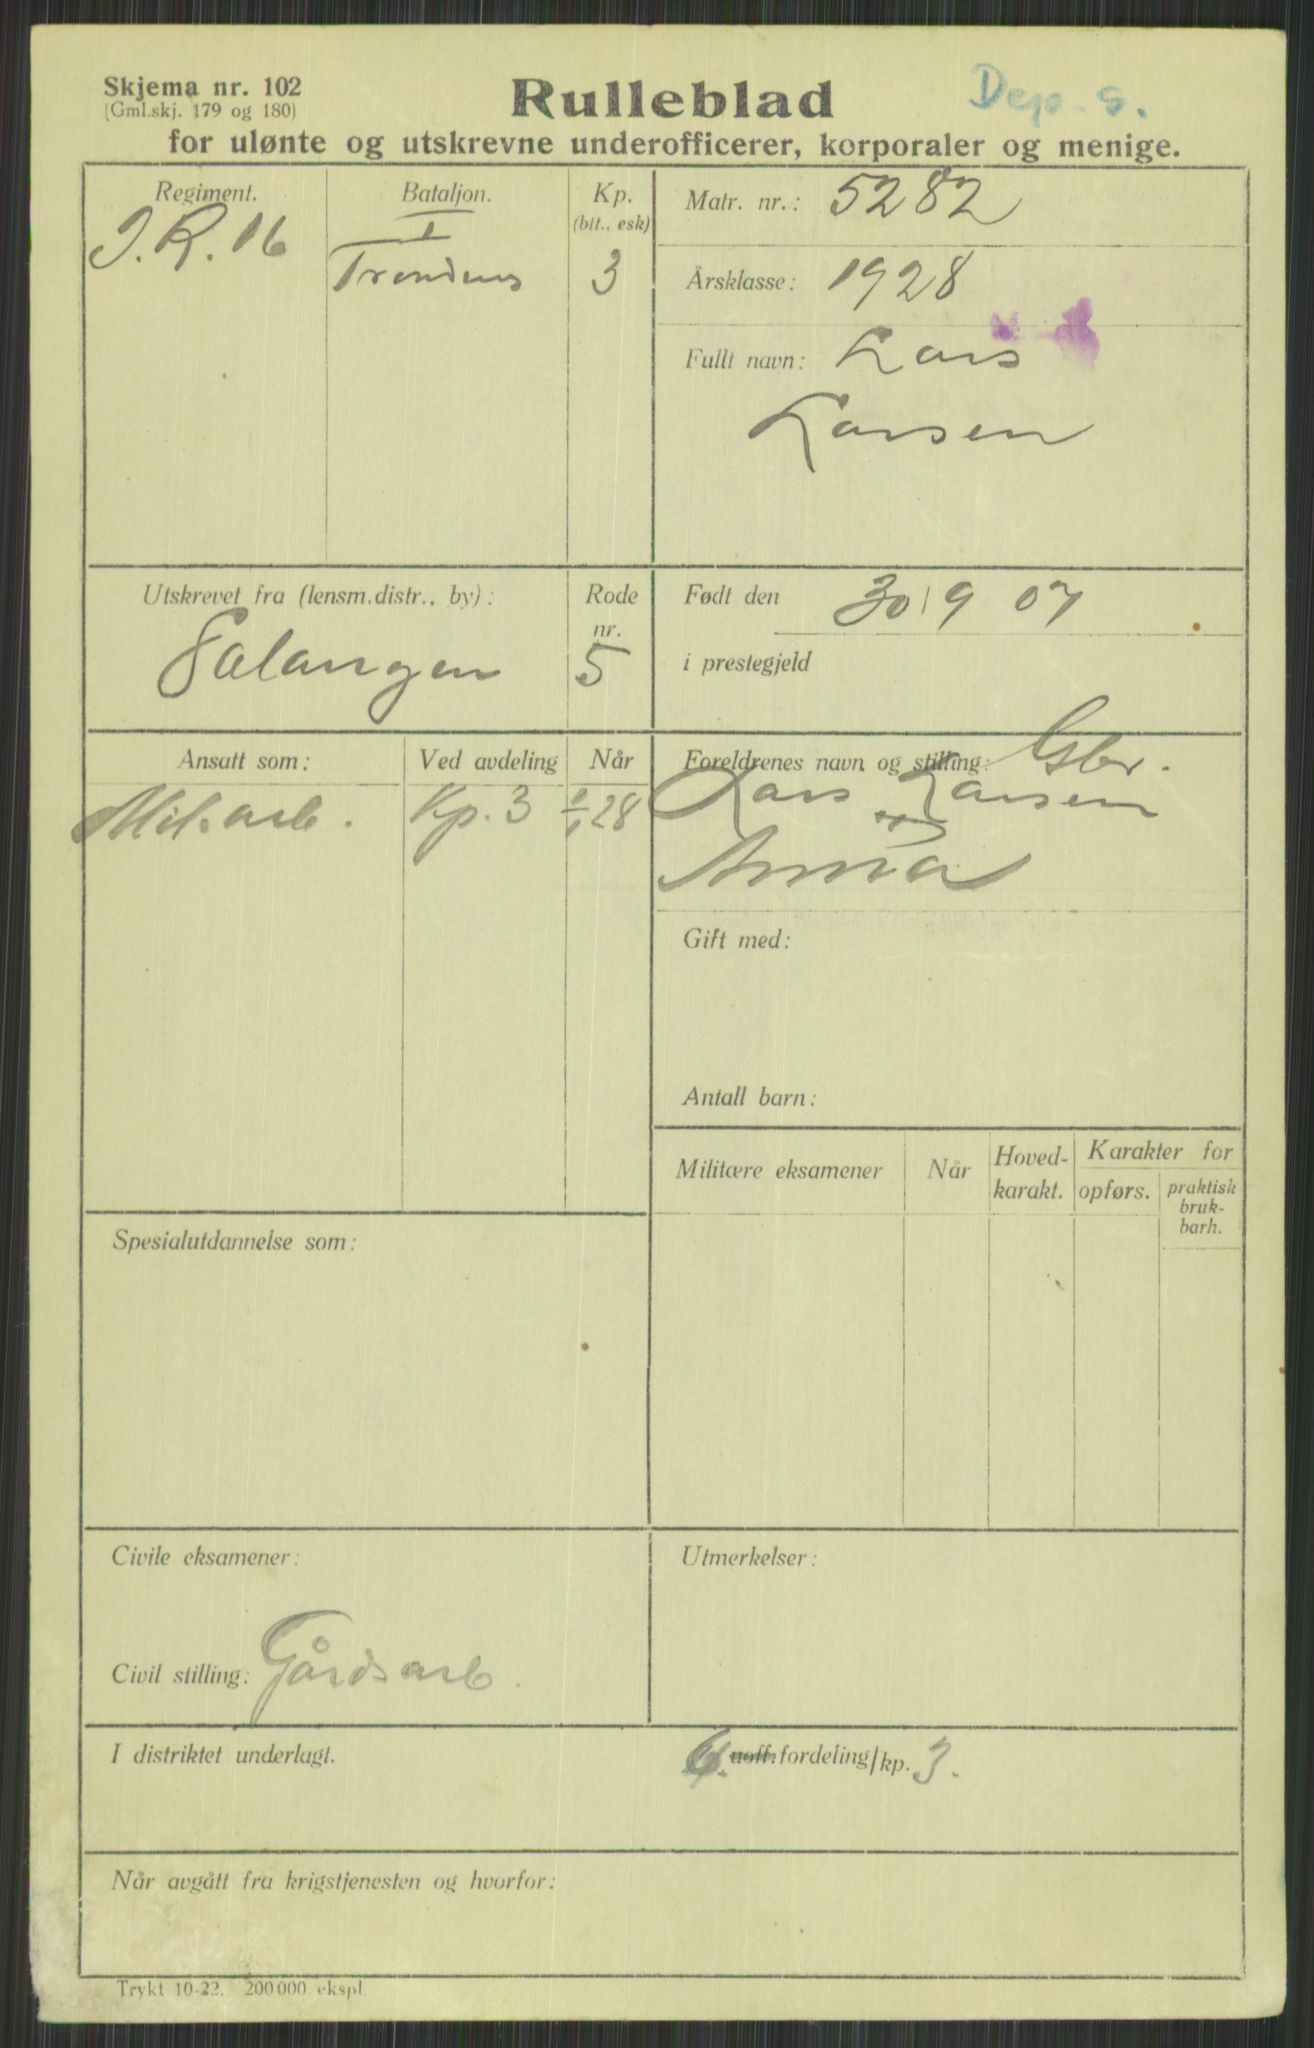 Skjema nr. 102
(Gml.skj. 179 og 180)
Rulleblad
Dep. s.
for ulønte og utskrevne underofficerer, korporaler og menige.
Regiment.
I.R. 16
Bataljon.
I
Trondens
Kp.
(btt., esk)
3
Matr. nr.: 5282
Årsklasse: 1928
Fullt navn: Lars
Larsen
Utskrevet fra (lensm.distr., by):
Salangen
Rode
nr.
5
Født den 30/9 07
i prestegjeld
Ansatt som:
Mil.arb.
Ved avdeling
Kp. 3
Når
1/1 28
Foreldrenes navn og stilling: Gbr.
Lars Larsen
og
Anna
Gift med:
Antall barn:
Militære eksamener
Når
Hoved-
karakt.
Karakter for
opførs.
praktisk
bruk-
barh.
Spesialutdannelse som:
Civile eksamener:
Civil stilling: Gårdsarb.
Utmerkelser:
I distriktet underlagt.
uoff. fordeling/kp. 3.
Når avgått fra krigstjenesten og hvorfor:
Trykt 10-22. 200 000 ekspl.